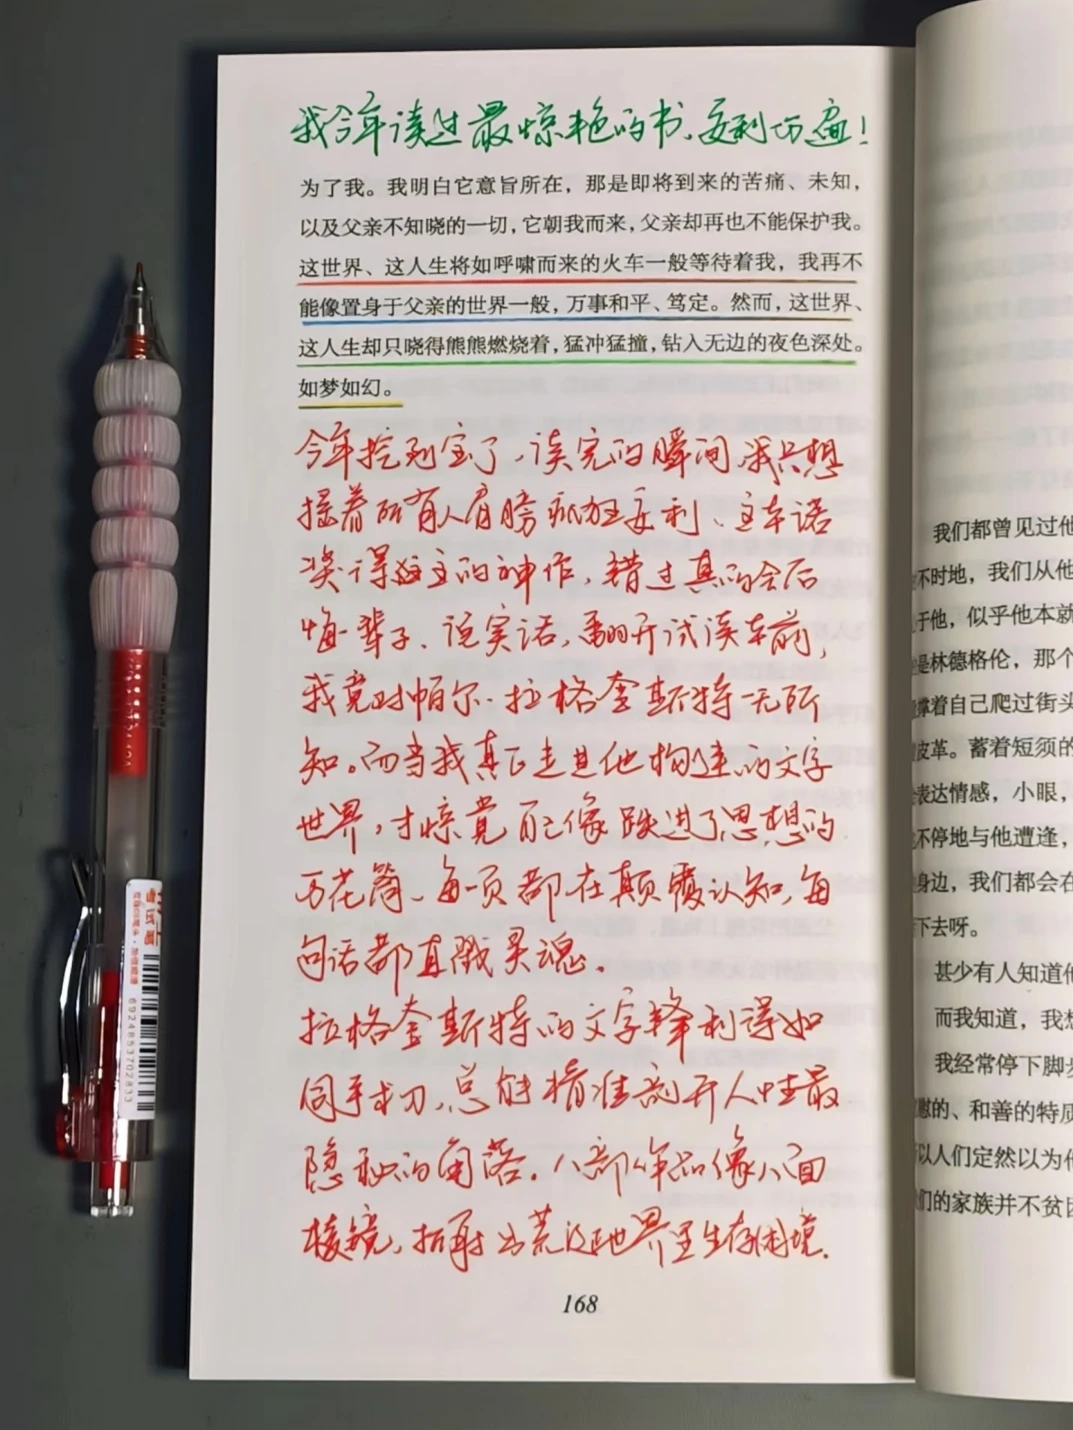 我今年读过最惊艳的书、安利万遍！
为了我。我明白它意旨所在，那是即将到来的苦痛、未知，
以及父亲不知晓的一切，它朝我而来，父亲却再也不能保护我。
这世界、这人生将如呼啸而来的火车一般等待着我，我再不
能像置身于父亲的世界一般，万事和平、笃定。然而，这世界、
这人生却只晓得熊熊燃烧着，猛冲猛撞，钻入无边的夜色深处。
如梦如幻。
今年挖到宝了，读完的瞬间，我只想
摇着所有人肩膀疯狂安利、这本诺
奖得主的神作，错过真的会后
悔一辈子、说实话，翻开试读本前，
我竟对帕尔·拉格奎斯特一无所
知。而当我真正走进他构建的文字
世界，才惊觉自己像跌进了思想的
万花筒、每一页都在颠覆认知，每
句话都直戳灵魂.
拉格奎斯特的文字锋利得如
同手术刀，总能精准剖开人性最
隐秘的角落. 八部作品像八面
棱镜，折射出荒诞世界里生存困境.
168
我们都曾见过他
不时地，我们从他
于他，似乎他本就
是林德格伦，那个
撑着自己爬过街头
皮革。蓄着短须的
表达情感，小眼，
不停地与他遭逢，
身边，我们都会在
下去呀。
甚少有人知道他
而我知道，我想
我经常停下脚步
慰的、和善的特质
以人们定然以为他
们的家族并不贫困
6924853702833